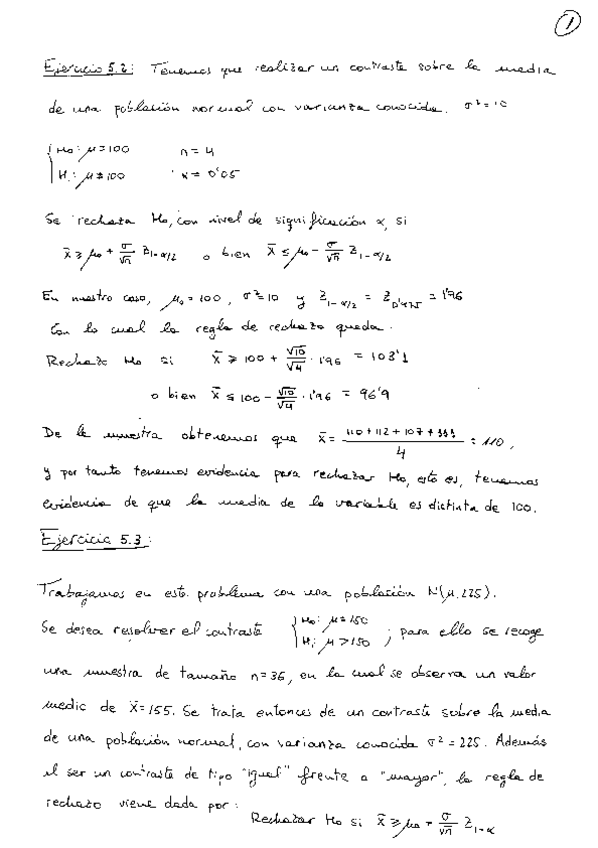 1
Ejercicio 5.2: Tenemos que realizar un contraste sobre la media
de una población normal con varianza conocida. σ²=10
{ H₀: μ=100 n=4
{ H₁: μ≠100 α=0'05
Se rechaza H₀, con nivel de significación α, si
x̄ ≥ μ₀ + σ/√n Z₁₋α/₂ o bien x̄ ≤ μ₀ - σ/√n Z₁₋α/₂
En nuestro caso, μ₀=100, σ²=10 y Z₁₋α/₂ = Z₀'₉₇₅ = 1'96
Con lo cual la regla de rechazo queda.
Rechazo H₀ si x̄ ≥ 100 + √10/√4 · 1'96 = 103'1
o bien x̄ ≤ 100 - √10/√4 · 1'96 = 96'9
De la muestra obtenemos que x̄ = 110+112+107+111/4 = 110,
y por tanto tenemos evidencia para rechazar H₀, esto es, tenemos
evidencia de que la media de la variable es distinta de 100.
Ejercicio 5.3:
Trabajamos en este problema con una población N(μ,225).
Se desea resolver el contraste { H₀: μ=150 H₁: μ>150 ; para ello se recoge
una muestra de tamaño n=36, en la cual se observa un valor
medio de x̄=155. Se trata entonces de un contraste sobre la media
de una población normal, con varianza conocida σ²=225. Además
al ser un contraste de tipo "igual" frente a "mayor", la regla de
rechazo viene dada por:
Rechazar H₀ si x̄ ≥ μ₀ + σ/√n Z₁₋α